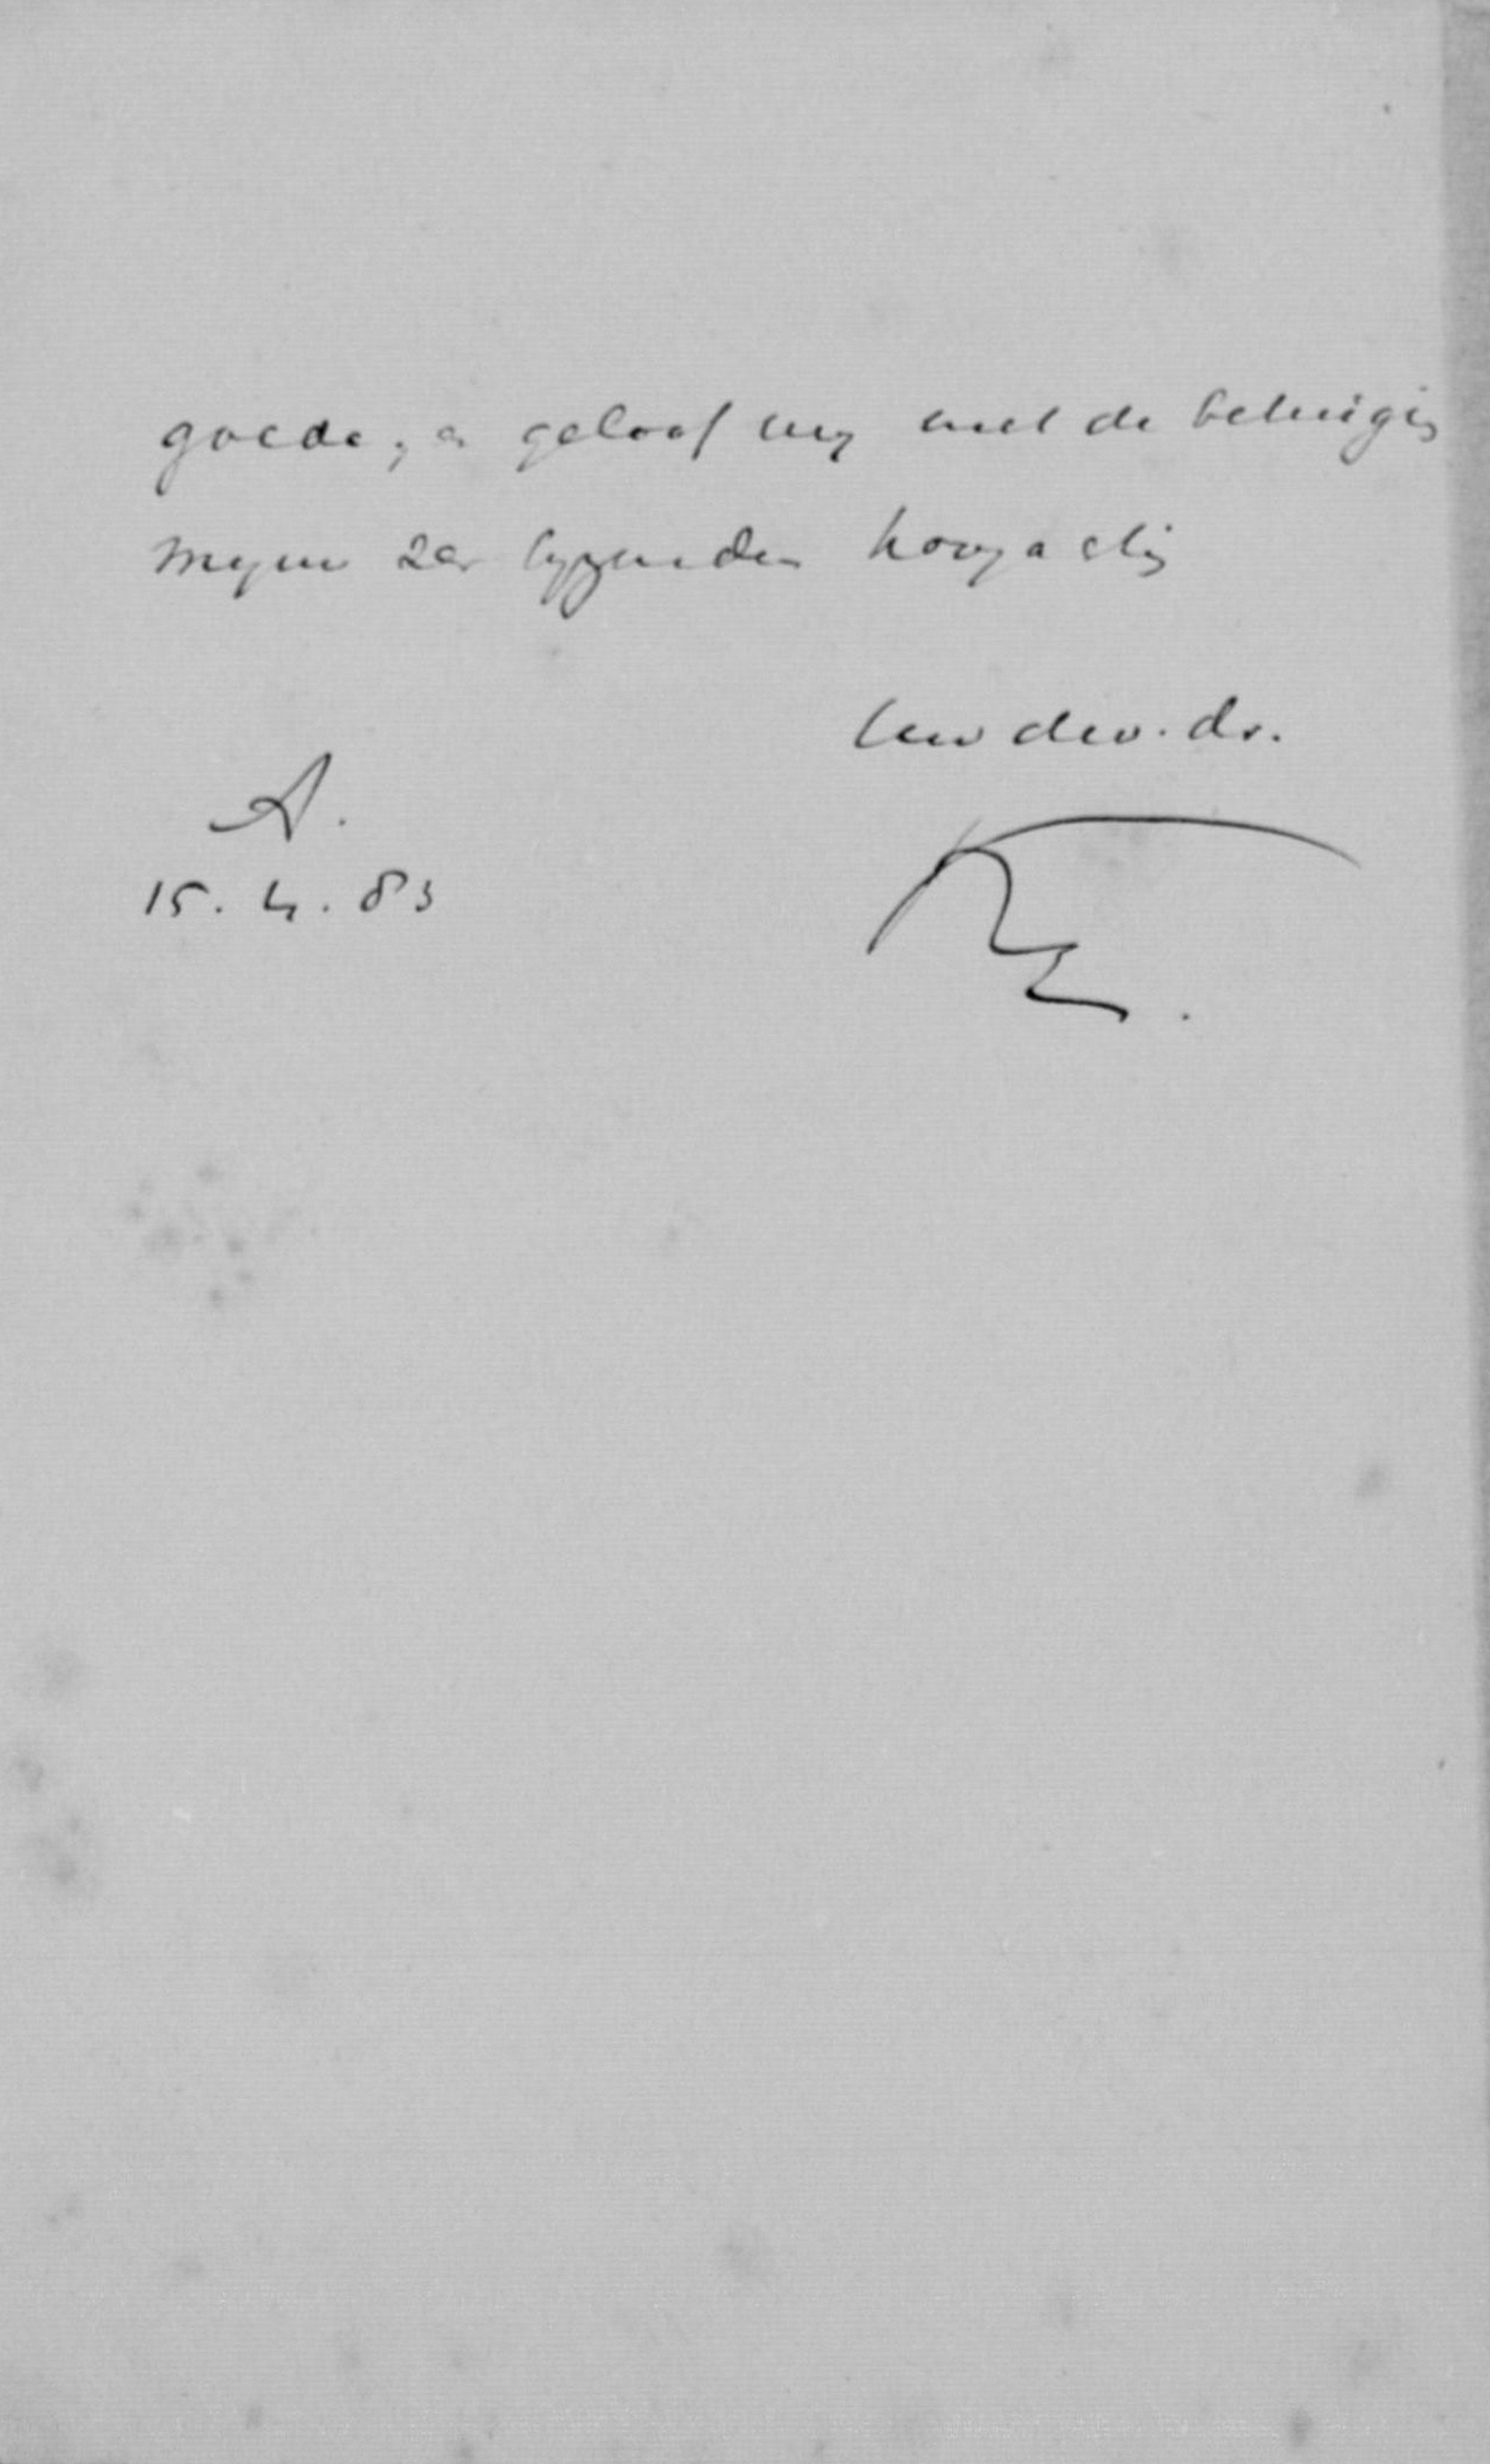 goede; en geloof my met de betuiging
myner zeer byzondere hoogachting
Uw dw. dr.
A.
15. 4. 83